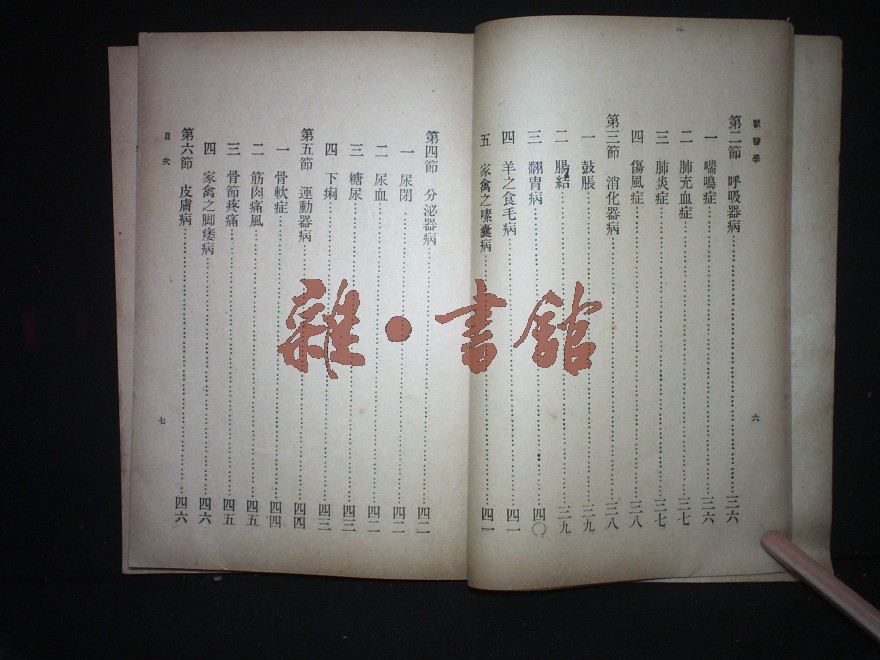 獸醫學
第二節　呼吸器病……三六
一　喘鳴症……三六
二　肺充血症……三七
三　肺炎症……三七
四　傷風症……三八
第三節　消化器病……三八
一　鼓脹……三九
二　腸結……三九
三　翻胃病……四〇
四　羊之食毛病……四一
五　家禽之嗉囊病……四一
六
第四節　分泌器病……四二
一　尿閉……四二
二　尿血……四二
三　糖尿……四三
四　下痢……四三
第五節　運動器病……四四
一　骨軟症……四四
二　筋肉痛風……四五
三　骨節疼痛……四五
四　家禽之脚痿病……四六
第六節　皮膚病……四六
目次
七
雜·書館